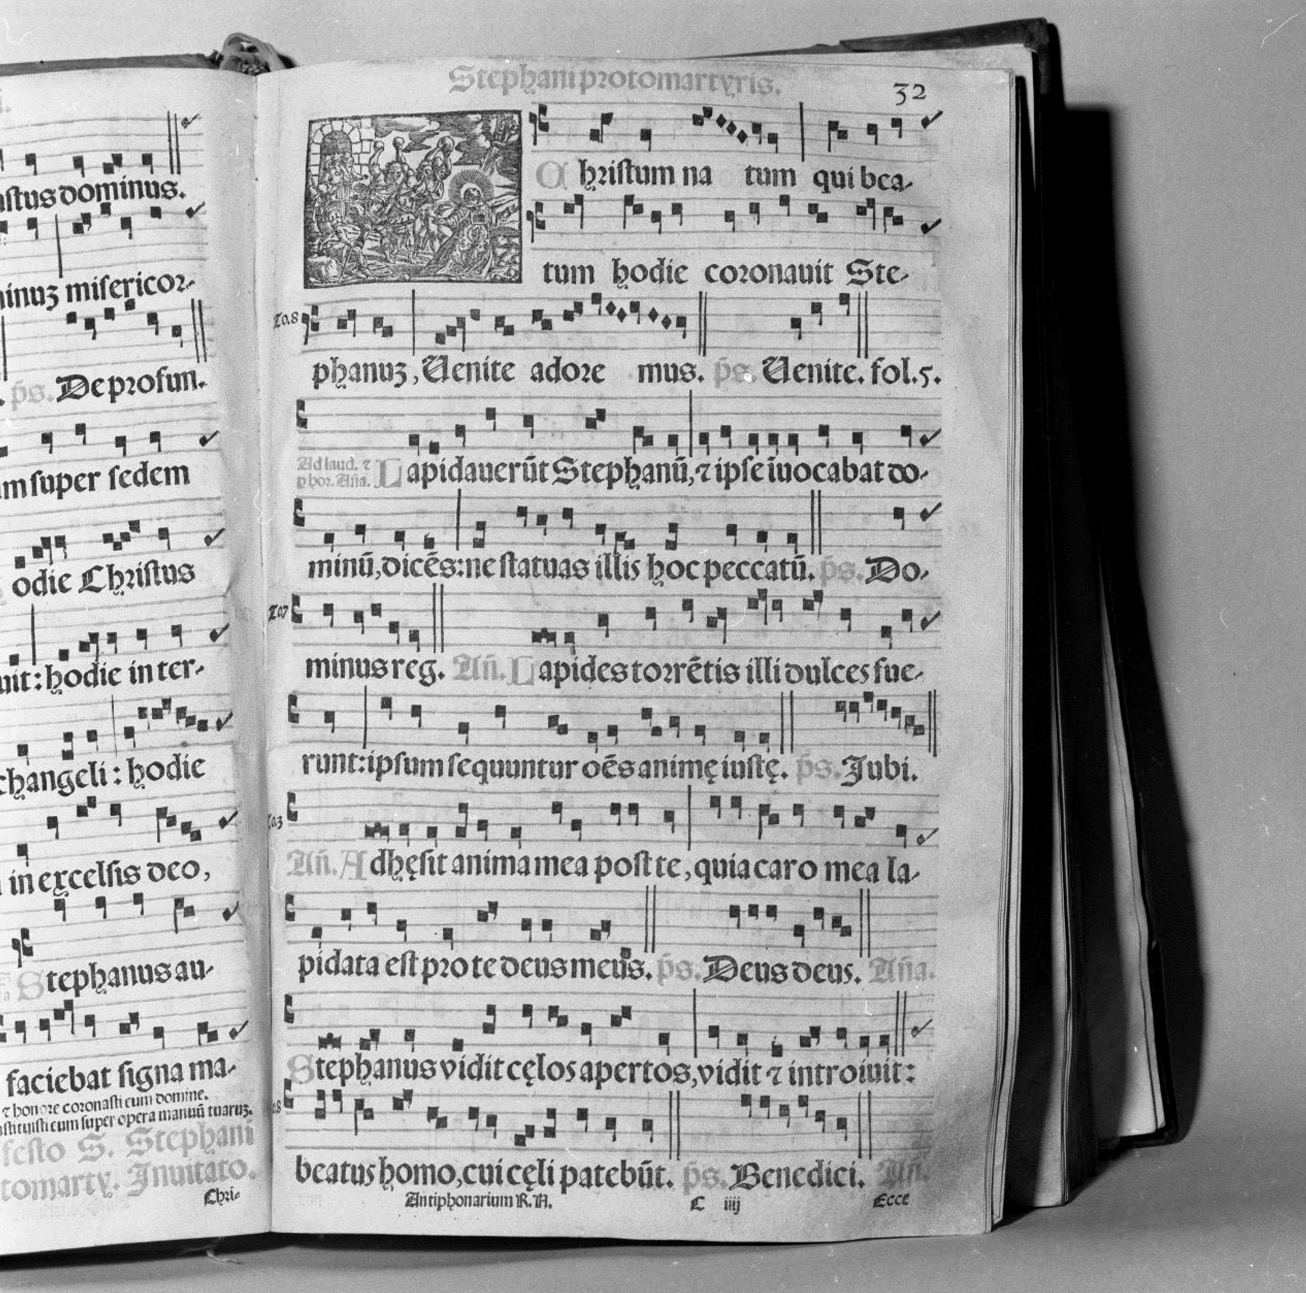 astus dominus.
inuz misericor-
p̄s. De profun.
m super sedem
odie Christus
uit: hodie in ter-
changeli: hodie
in excelsis deo,
Stephanus au-
faciebat signa ma-
⁊ honore coronasti eum domine.
nstituisti eum super opera manuū tuaruz.
festo S. Stephani
tomarty. Inuitato.
Chri-
Stephani protomartyris.
32
Christum na tum qui bea-
tum hodie coronauit Ste-
To.8
phanuz, Uenite adore mus. p̄s. Uenite. fol.5.
Ad laud. ⁊
p hor. Aña.
Lapidauerūt Stephanū, ⁊ ipse īuocabat do-
minū, dicēs: ne statuas illis hoc peccatū. p̄s. Do-
To.7
minus reg. Añ. Lapides torrētis illi dulces fue-
runt: ipsum sequuntur oēs animę iustę. p̄s. Jubi.
To.3
Añ. Adhęsit anima mea post te, quia caro mea la-
pidata est pro te deus meus. p̄s. Deus deus. Aña.
Stephanus vidit cęlos apertos, vidit ⁊ introiuit:
beatus homo, cui cęli patebūt. p̄s. Benedici. Añ.
Antiphonarium R. A. C iiij Ecce